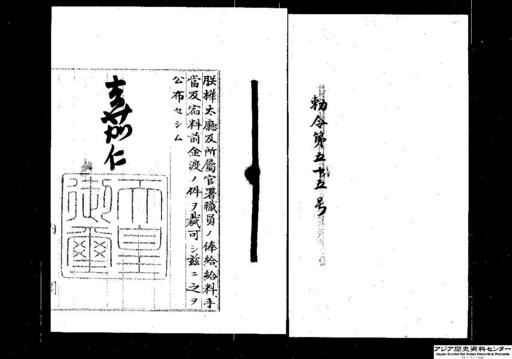 勅令第五十五号
朕樺太廳及所屬官署職員ノ俸給給料手
當及宿料前金渡ノ件ヲ裁可シ茲ニ之ヲ
公布セシム
嘉仁
天皇
御璽
アジア歴史資料センター
Japan Center for Asian Historical Records